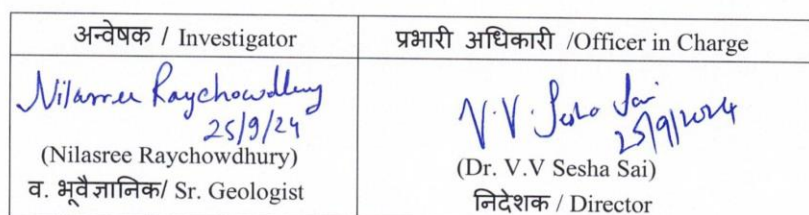 अन्वेषक / Investigator
प्रभारी अधिकारी /Officer in Charge
Nilasree Raychowdhury
25/9/24
(Nilasree Raychowdhury)
व. भूवैज्ञानिक/ Sr. Geologist
V.V. Sesha Sai
25/9/2024
(Dr. V.V Sesha Sai)
निदेशक / Director